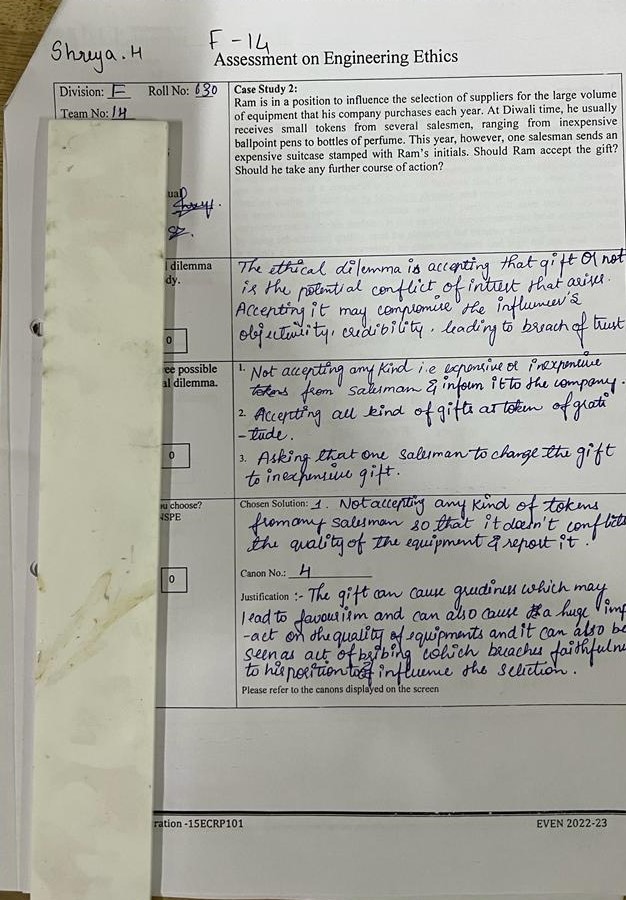 Shreya. H
F - 14
Assessment on Engineering Ethics
Division: F Roll No: 630
Team No: 14
Case Study 2:
Ram is in a position to influence the selection of suppliers for the large volume
of equipment that his company purchases each year. At Diwali time, he usually
receives small tokens from several salesmen, ranging from inexpensive
ballpoint pens to bottles of perfume. This year, however, one salesman sends an
expensive suitcase stamped with Ram's initials. Should Ram accept the gift?
Should he take any further course of action?
ual
dilemma
dy.
0
The ethical dilemma is accepting that gift or not
is the potential conflict of intrest that arises.
Accepting it may compromise the influencer's
objectivity, credibility, leading to breach of trust
ee possible
al dilemma.
0
1. Not accepting any kind i.e expensive or inexpensive
tokens from salesman & inform it to the company.
2. Accepting all kind of gifts as token of grati
-tude.
3. Asking that one salesman to change the gift
to inexpensive gift.
u choose?
NSPE
0
Chosen Solution: 1. Not accepting any kind of tokens
from any salesman so that it doesn't conflicts
the quality of the equipment & report it.
Canon No.: 4
Justification :- The gift can cause greediness which may
lead to favourism and can also cause a huge imp
-act on the quality of equipments and it can also be
seen as act of bribing which breaches faithfulne
to his position to influence the selection.
Please refer to the canons displayed on the screen
ration -15ECRP101
EVEN 2022-23